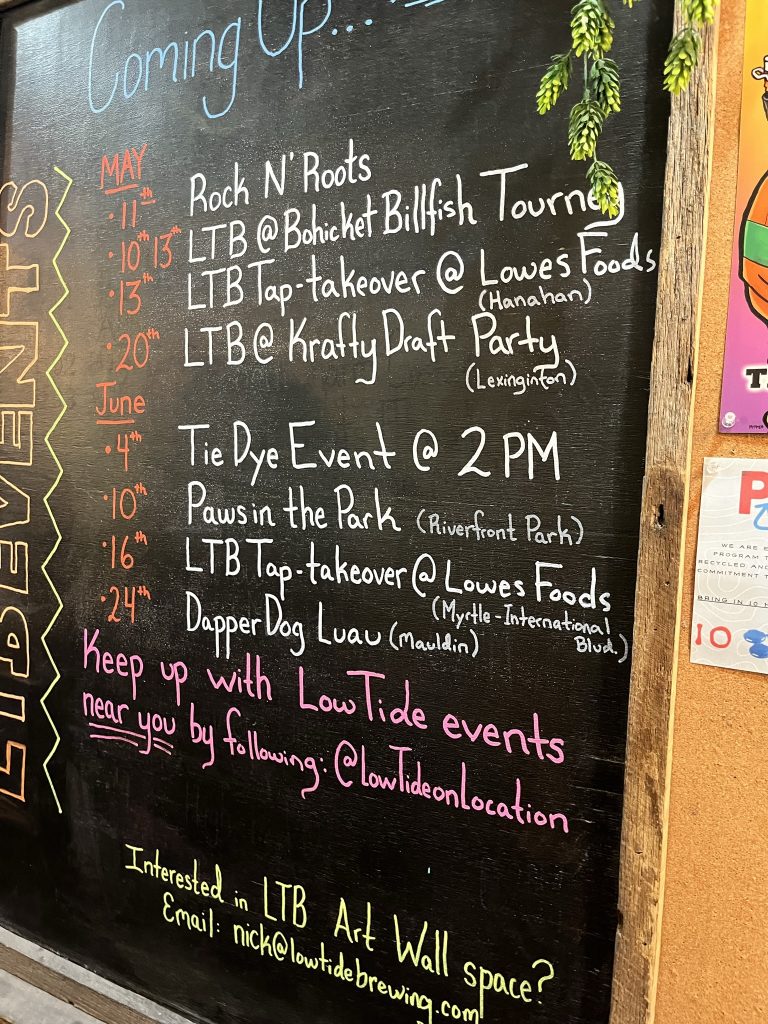 Coming Up...
LTB EVENTS
MAY
·11th Rock N' Roots
·10th 13th LTB @ Bohicket Billfish Tourney
·13th LTB Tap-takeover @ Lowes Foods
(Hanahan)
·20th LTB @ Krafty Draft Party
(Lexinginton)
June
·4th Tie Dye Event @ 2 PM
·10th Paws in the Park (Riverfront Park)
·16th LTB Tap-takeover @ Lowes Foods
(Myrtle-International
Blvd.)
·24th Dapper Dog Luau (Mauldin)
Keep up with LowTide events
near you by following: @lowTideonLocation
Interested in LTB Art Wall space?
Email: nick@lowtidebrewing.com
WE ARE E
PROGRAM T
RECYCLED AND
COMMITMENT T
BRING IN 10
10